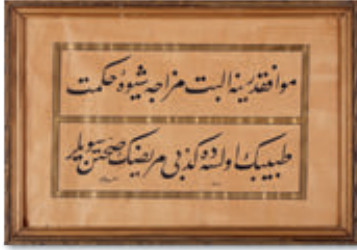 موافقدرینه البت مزاجه شیوۀ حکمت
طبیبك اولسه ده کذبی مریضك صحتن سویلر